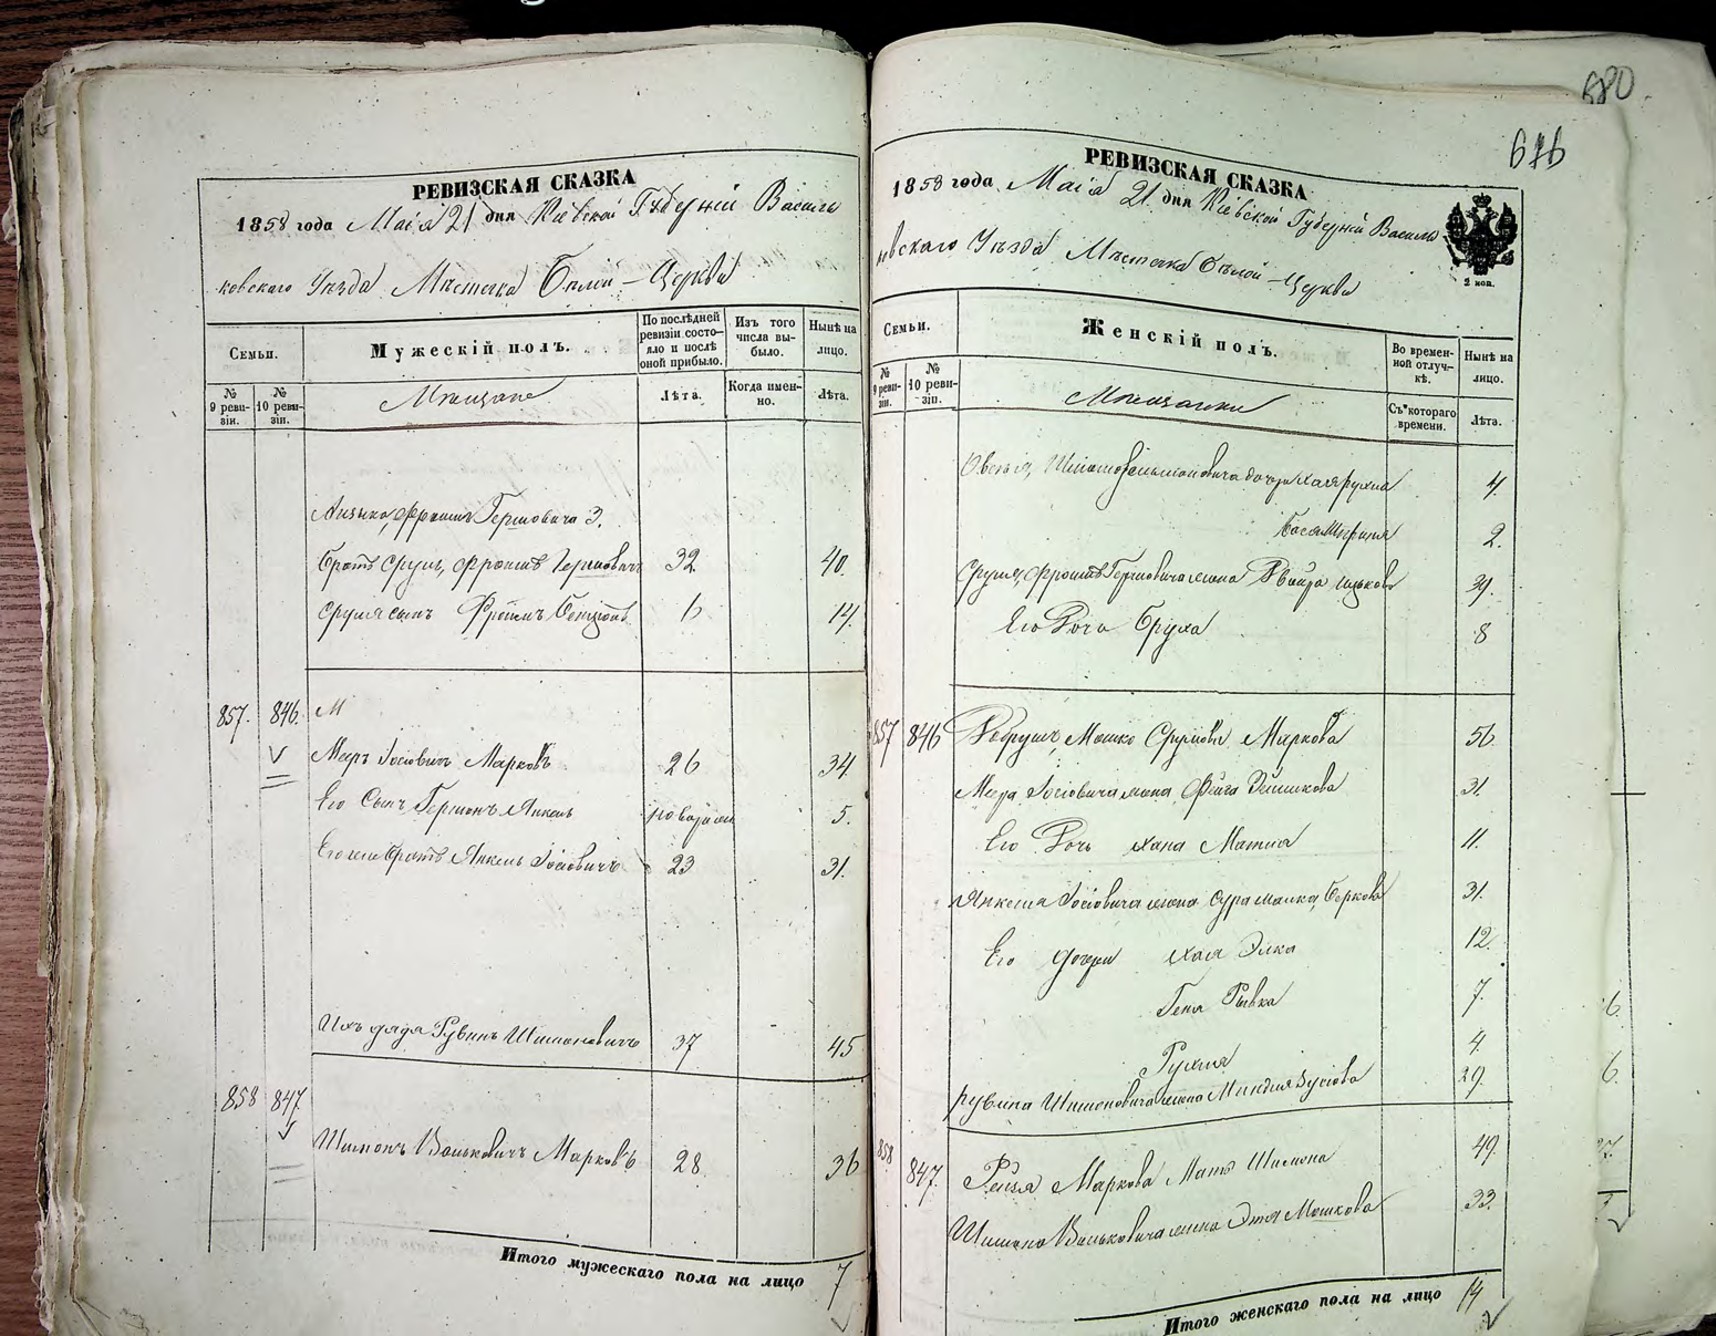 680
616
РЕВИЗСКАЯ СКАЗКА
1858 года Маія 21 дня Кіевской Губерніи Василь
ковскаго Уѣзда Мѣстечка Бѣлой-Церкви
Семьи.
Мужескій полъ.
По послѣдней ревизіи состояло и послѣ оной прибыло.
Изъ того числа выбыло.
Нынѣ на лицо.
№ 9 ревизіи.
№ 10 ревизіи.
Мѣщане
Лѣта.
Когда именно.
Лѣта.
Фроимъ Гершовича 3.
братъ Сруль, Фроимъ Гершовичъ 32 40.
Сруля сынъ Фроимъ Бенціонъ 6 14.
857. 846. М
Меръ Іосіовичъ Марковъ 26 34.
Его Сынъ Гершонъ Янкель 5.
Его же братъ Янкель Іосіовичъ 23 31.
Ихъ дядя Рувинъ Шимоновичъ 37 45
858 847.
Шимонъ Волковичъ Марковъ 28. 36
Итого мужескаго пола на лицо 7
РЕВИЗСКАЯ СКАЗКА
1858 года Маія 21 дня Кіевской Губерніи Василь
ковскаго Уѣзда Мѣстечка Бѣлой-Церкви
2 коп.
Семьи.
Женскій полъ.
Во временной отлучкѣ.
Нынѣ на лицо.
№ 9 ревизіи.
№ 10 ревизіи.
Мѣщанки
Съ котораго времени.
Лѣта.
дочери Хая Рухля 4.
Бася 2.
Сруля, Фроимъ Гершовича жена Двойра Ицькова 39.
Его Дочь Бруха 8
857 846 Мошко Срулевъ Маркова 56
Мера Іосіовича жена Фейга 31.
Его Дочь Хана Матля 11.
Янкеля Іосіовича жена Сура Малка Беркова 31.
Его дочери Хая Элка 12.
Геня Рывка 7.
Рухля 4.
Рувина Шимоновича жена Миндля Зусіова 29.
858 847. Рейзя Маркова Мать Шимона 49.
Шимона Волковича жена Этя Мошкова 33.
Итого женскаго пола на лицо 14